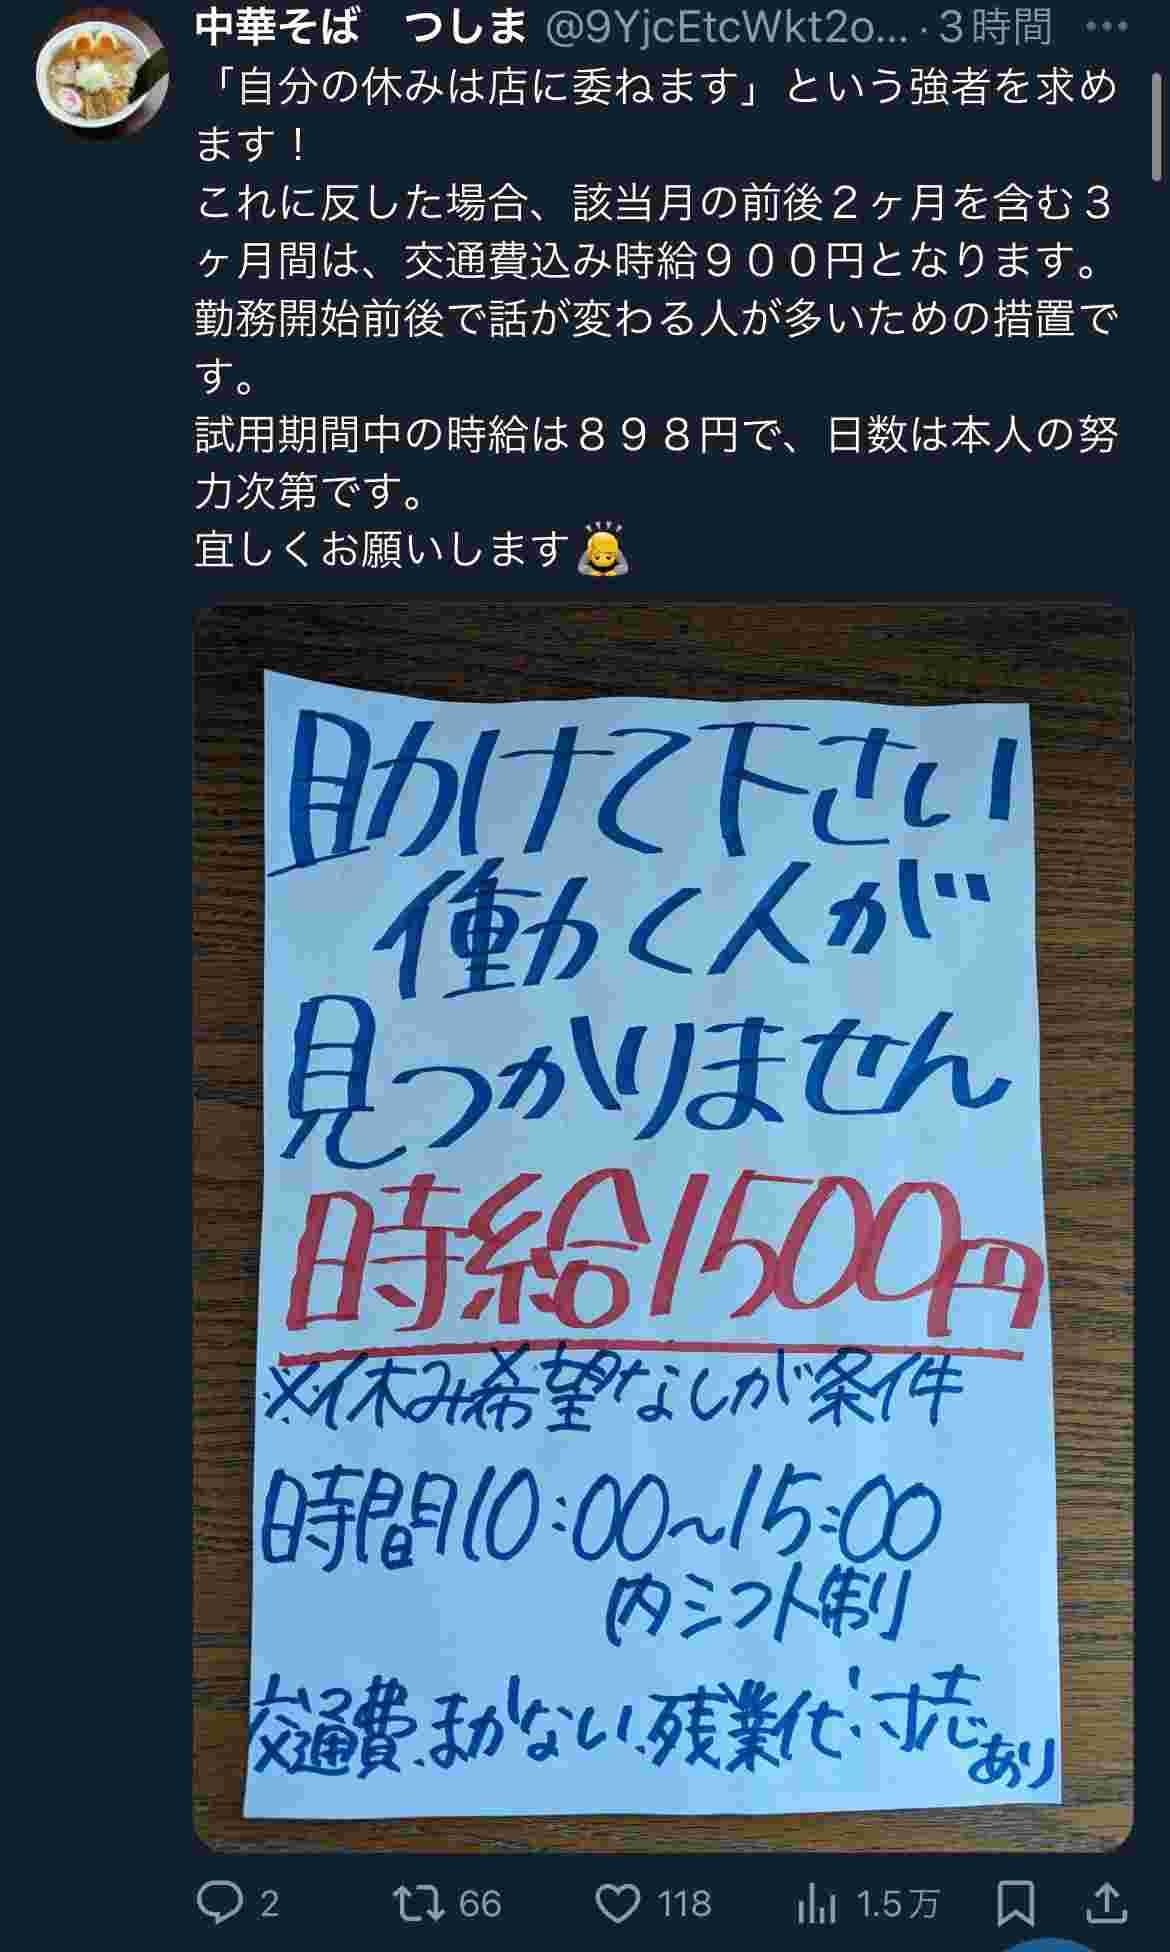 中華そば　つしま @9YjcEtcWkt2o... · 3時間
「自分の休みは店に委ねます」という強者を求め
ます！
これに反した場合、該当月の前後２ヶ月を含む３
ヶ月間は、交通費込み時給９００円となります。
勤務開始前後で話が変わる人が多いための措置で
す。
試用期間中の時給は８９８円で、日数は本人の努
力次第です。
宜しくお願いします🙇
助けて下さい
働く人が
見つかりません
時給1500円
※休み希望なしが条件
時間10:00～15:00
内シフト制
交通費、まかない、残業代、寸志あり
2 66 118 1.5万